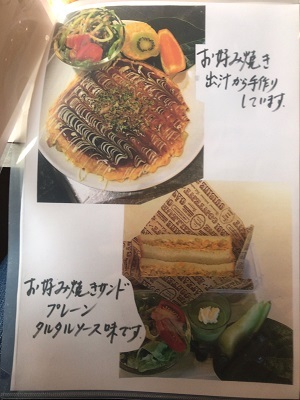 お好み焼き
出汁から手作り
しています。
お好み焼きサンド
プレーン
タルタルソース味です。